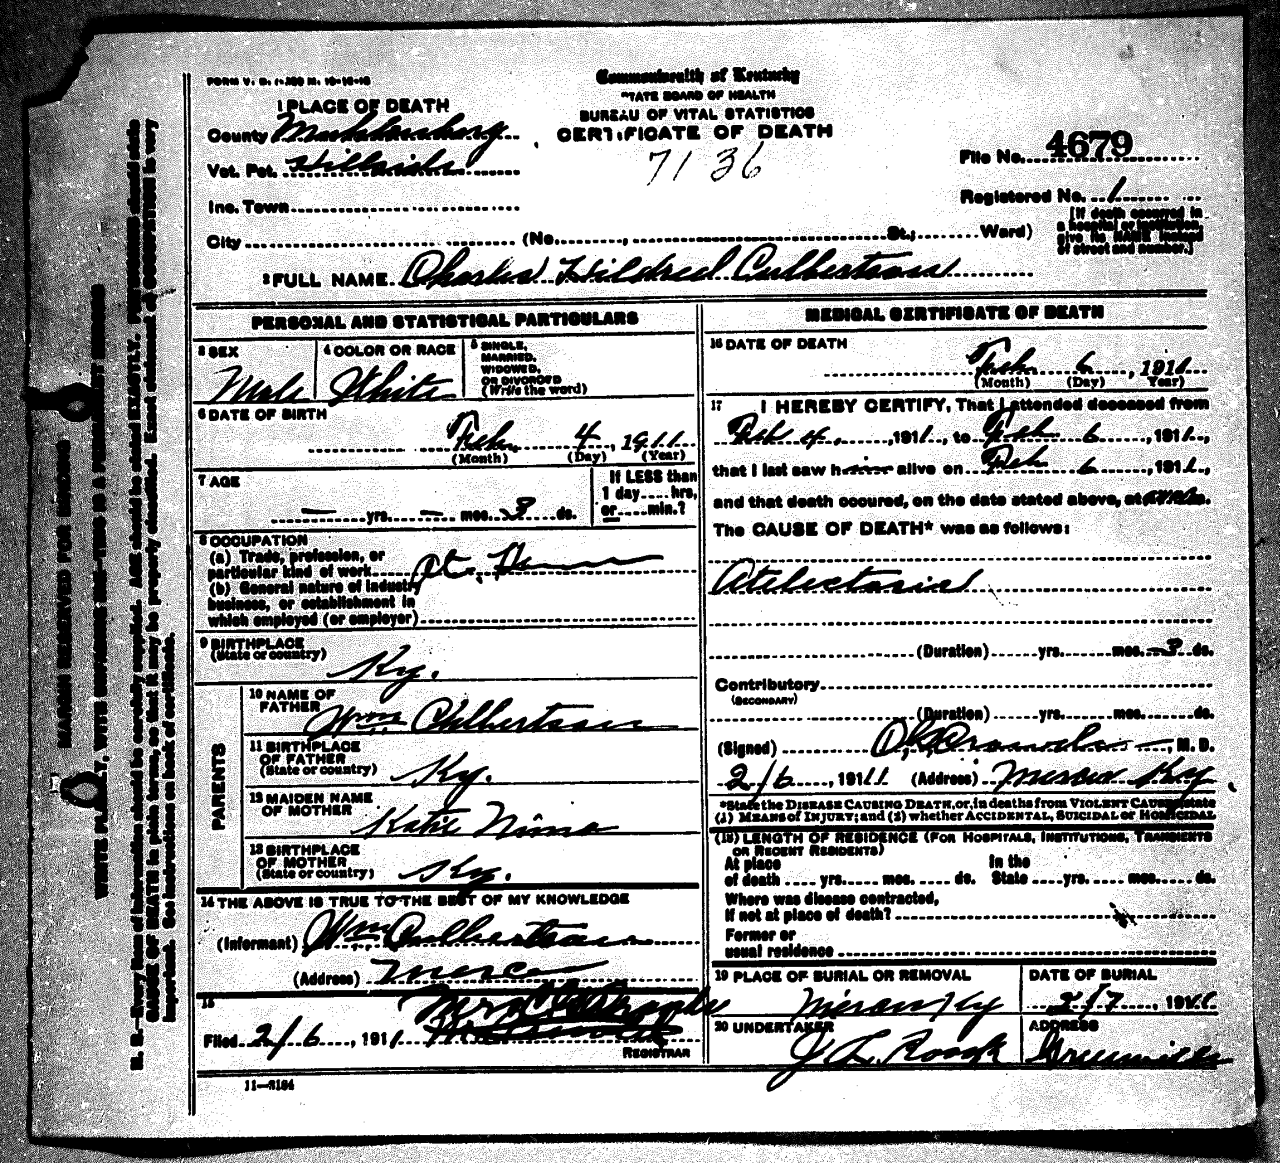 Commonwealth of Kentucky
STATE BOARD OF HEALTH
BUREAU OF VITAL STATISTICS
CERTIFICATE OF DEATH
7136
1 PLACE OF DEATH
County Muhlenberg
Vot. Pct. Hillside
Inc. Town
City (No. , St.; Ward)
File No. 4679
Registered No. 1
[If death occurred in a hospital or institution, give its NAME instead of street and number.]
2 FULL NAME Charles Hildred Culbertson
PERSONAL AND STATISTICAL PARTICULARS
3 SEX Male
4 COLOR OR RACE White
5 SINGLE, MARRIED, WIDOWED, OR DIVORCED (Write the word)
6 DATE OF BIRTH
Feb. 4, 1911
(Month) (Day) (Year)
7 AGE
— yrs. — mos. 3 ds.
If LESS than 1 day hrs, or min.?
8 OCCUPATION
(a) Trade, profession, or particular kind of work At Home
(b) General nature of industry business, or establishment in which employed (or employer)
9 BIRTHPLACE (State or country) Ky.
PARENTS
10 NAME OF FATHER Wm Culbertson
11 BIRTHPLACE OF FATHER (State or country) Ky.
12 MAIDEN NAME OF MOTHER Katie
13 BIRTHPLACE OF MOTHER (State or country) Ky.
14 THE ABOVE IS TRUE TO THE BEST OF MY KNOWLEDGE
(Informant) Wm. Culbertson
(Address) Mercer
15
Filed 2/6, 1911
REGISTRAR
11—3184
MEDICAL CERTIFICATE OF DEATH
16 DATE OF DEATH
Feb 6, 1911
(Month) (Day) (Year)
17 I HEREBY CERTIFY, That I attended deceased from
Feb 4, 1911, to Feb 6, 1911,
that I last saw h alive on Feb 6, 1911,
and that death occured, on the date stated above, at m.
The CAUSE OF DEATH* was as follows:
Atelectasis
(Duration) yrs. mos. 3 ds.
Contributory
(SECONDARY)
(Duration) yrs. mos. ds.
(Signed) , M. D.
2/6, 1911 (Address) Mercer Ky
*State the DISEASE CAUSING DEATH, or, in deaths from VIOLENT CAUSES, state
(1) MEANS OF INJURY; and (2) whether ACCIDENTAL, SUICIDAL or HOMICIDAL
(18) LENGTH OF RESIDENCE (FOR HOSPITALS, INSTITUTIONS, TRANSIENTS
OR RECENT RESIDENTS)
At place of death yrs. mos. ds. In the State yrs. mos. ds.
Where was disease contracted,
If not at place of death?
Former or
usual residence
19 PLACE OF BURIAL OR REMOVAL
Mercer Ky
DATE OF BURIAL
2/7, 1911
20 UNDERTAKER
J L Roark
ADDRESS
Greenville
MARGIN RESERVED FOR BINDING
WRITE PLAINLY, WITH UNFADING INK—THIS IS A PERMANENT RECORD
N. B.—Every item of information should be carefully supplied. AGE should be stated EXACTLY. PHYSICIANS should state
CAUSE OF DEATH in plain terms, so that it may be properly classified. Exact statement of OCCUPATION is very
important. See instructions on back of certificate.